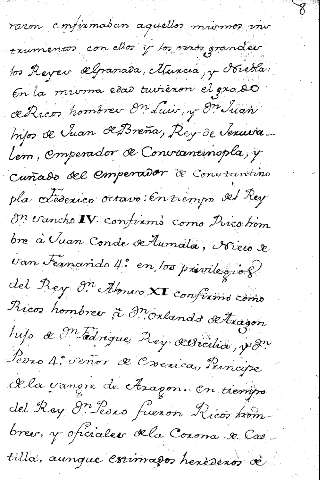 8
raron confirmaban aquellos mismos ins
trumentos con ellos y los otros grandes
los Reyes de Granada, Murcia, y Niebla:
En la misma edad tuvieron el grado
de Ricos hombres Dn. Luis, y Dn. Juan
hijos de Juan de Breña, Rey de Jerusa-
lem, emperador de Constantinopla, y
cuñado del emperador de Constantino
pla Federico octavo: En tiempo del Rey
Dn. Sancho IV. confirmó como Rico hom
bre á Juan Conde de Aumala, Nieto de
San Fernando 4.º en los privilegios
del Rey Dn. Alonso XI confirmó como
Ricos hombres á Dn. Orlando de Aragon
hijo de Dn. Fadrique Rey de Sicilia, y Dn.
Pedro 4.º señor de Exerica, Principe
de la sangre de Aragon. en tiempo
del Rey Dn. Pedro fueron Ricos hom-
bres, y oficiales de la Corona de Cas
tilla, aunque estimados herederos de